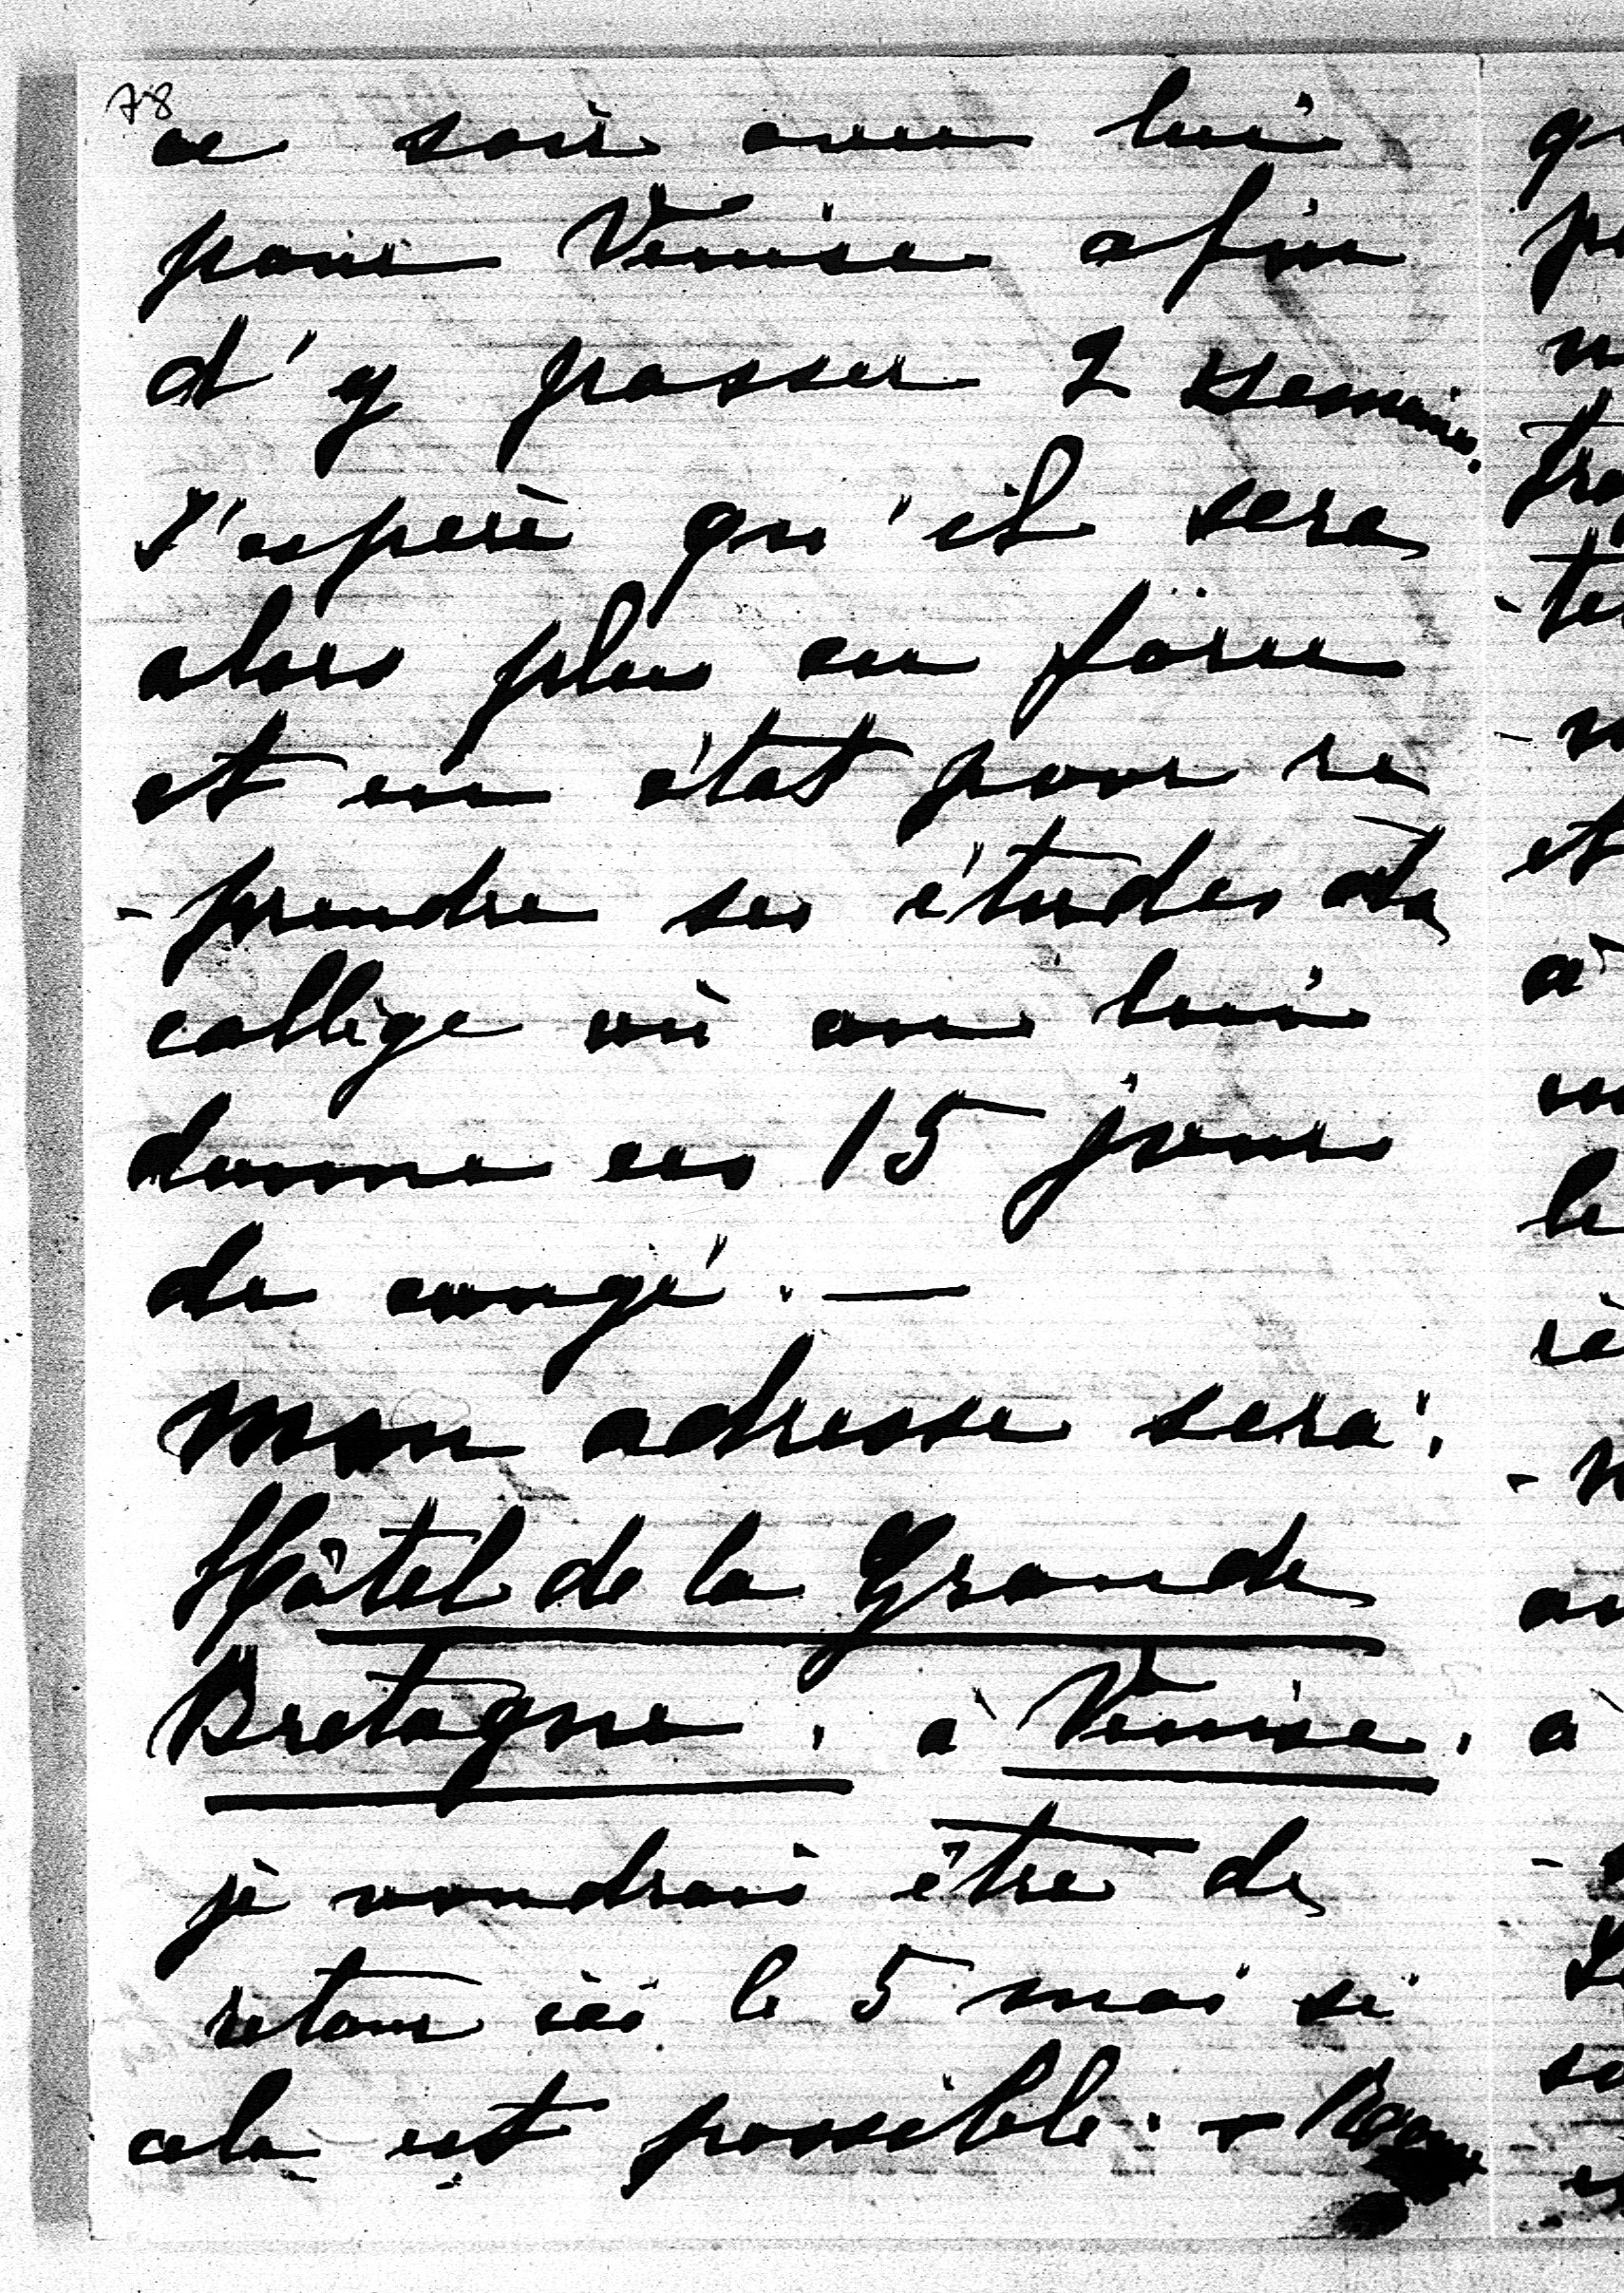 78
ce soir avec lui
pour Venise afin
d'y passer 2 semaines.
J'espère qu'il sera
alors plus en force
et en état pour re
-prendre ses études du
collège où on lui
donne ces 15 jours
de congé. —
Mon adresse sera:
Hôtel de la Grande
Bretagne, à Venise.
je voudrais être de
retour ici le 5 mai si
cela est possible. —